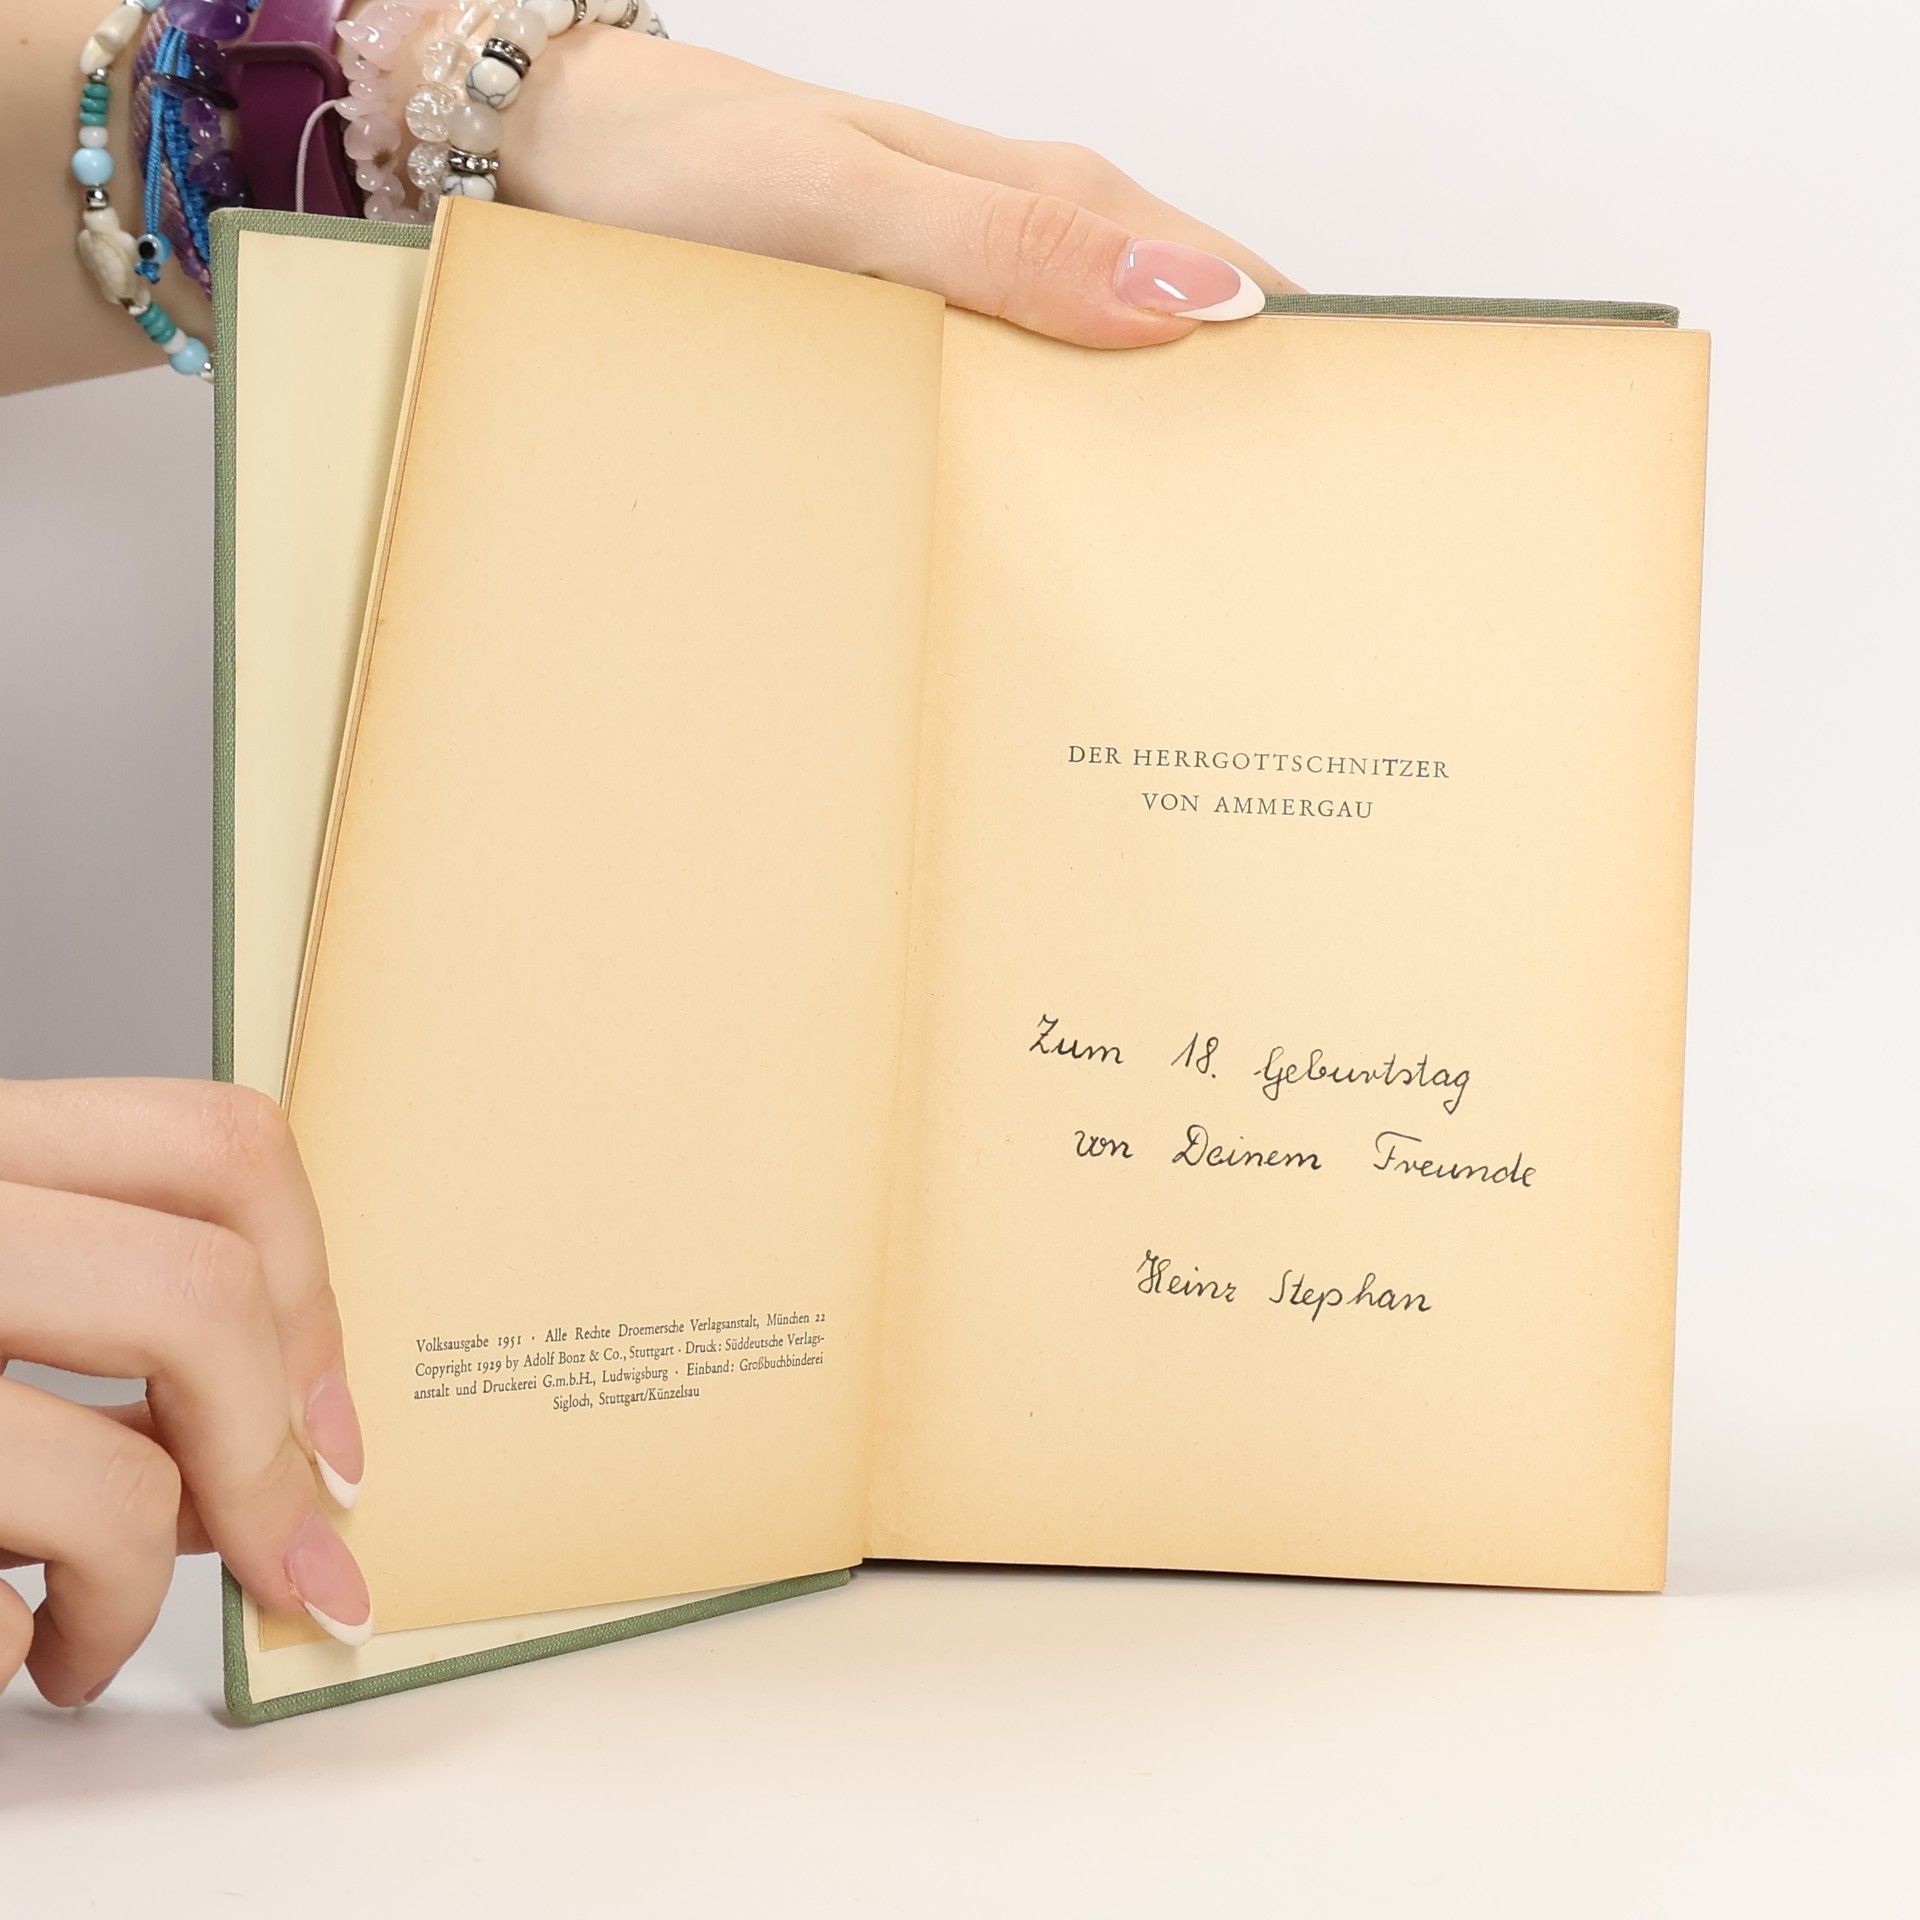 Volksausgabe 1951 · Alle Rechte Droemersche Verlagsanstalt, München 22
Copyright 1929 by Adolf Bonz & Co., Stuttgart · Druck: Süddeutsche Verlags-
anstalt und Druckerei G.m.b.H., Ludwigsburg · Einband: Großbuchbinderei
Sigloch, Stuttgart/Künzelsau
DER HERRGOTTSCHNITZER
VON AMMERGAU
Zum 18. Geburtstag
von Deinem Freunde
Heinz Stephan